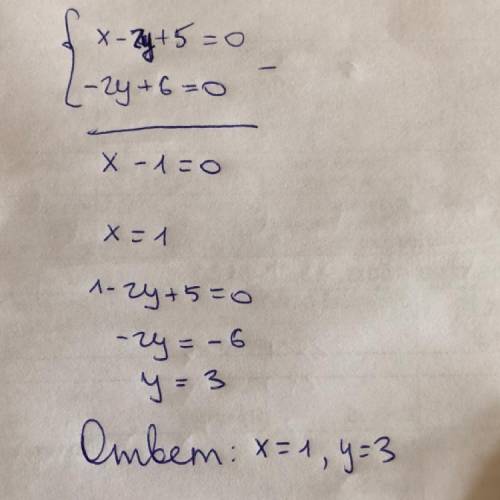 x-2y+5=0
-2y+6=0 -
x-1=0
x=1
1-2y+5=0
-2y=-6
y=3
Ответ: x=1, y=3